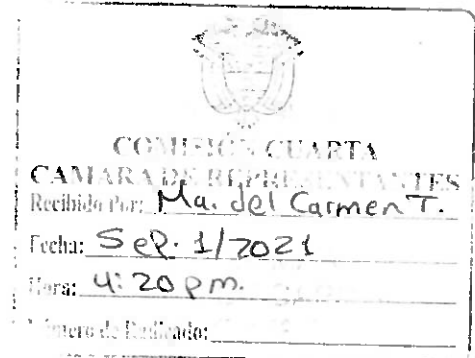 COMISIÓN CUARTA
CAMARA DE REPRESENTANTES
Recibido Por: Ma. del Carmen T.
Fecha: Sep. 1/2021
Hora: 4:20 pm.
Número de Radicado: